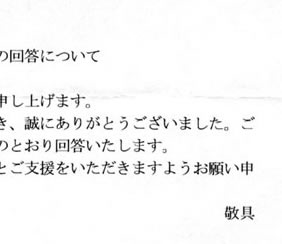 の回答について
申し上げます。
き、誠にありがとうございました。ご
のとおり回答いたします。
とご支援をいただきますようお願い申
敬具